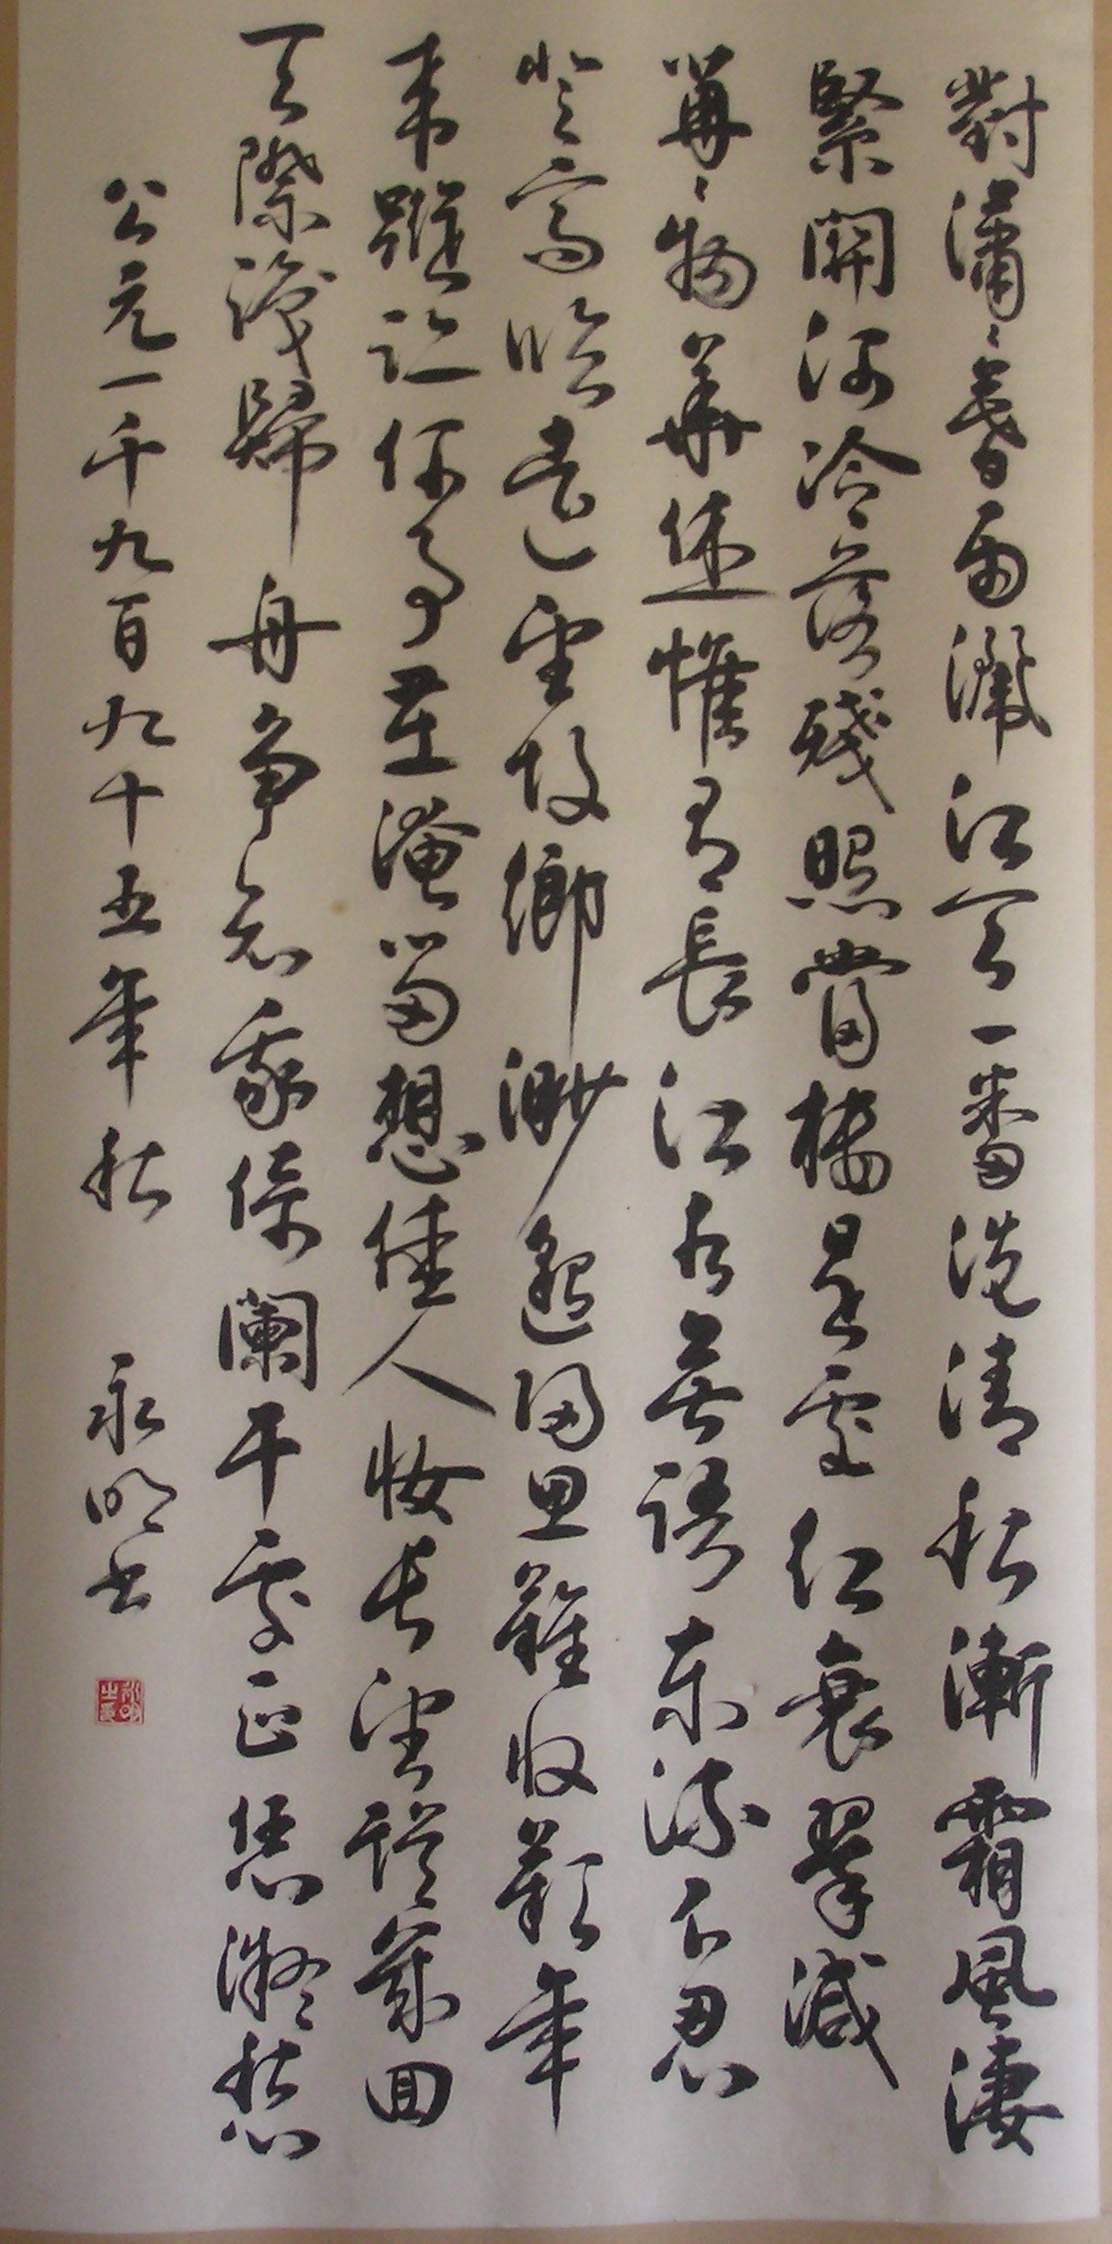 對瀟〻暮雨灑江天一番洗清秋漸霜風淒
緊關河冷落殘照當樓是處紅衰翠減
苒〻物華休惟有長江水無語東流不忍
登高臨遠望故鄉渺邈歸思難收歎年
來蹤跡何事苦淹留想佳人妝長望誤幾回
天際識歸舟爭知我倚闌干處正恁凝愁
公元一千九百九十五年秋 永明書